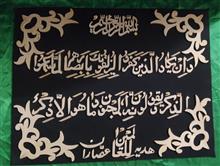 بسم الله الرحمن الرحيم
وان يكاد الذين كفروا ليزلقونك بابصارهم لما سمعوا
الذكر ويقولون انه لمجنون وما هو الا ذكر
للعالمين